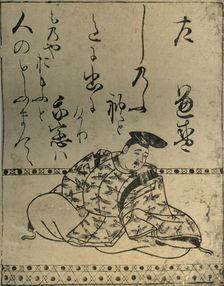 左　兼盛
しのふ
れと
いろに出に
けりわか
恋ハ
ものやおもふと
人のとふまて